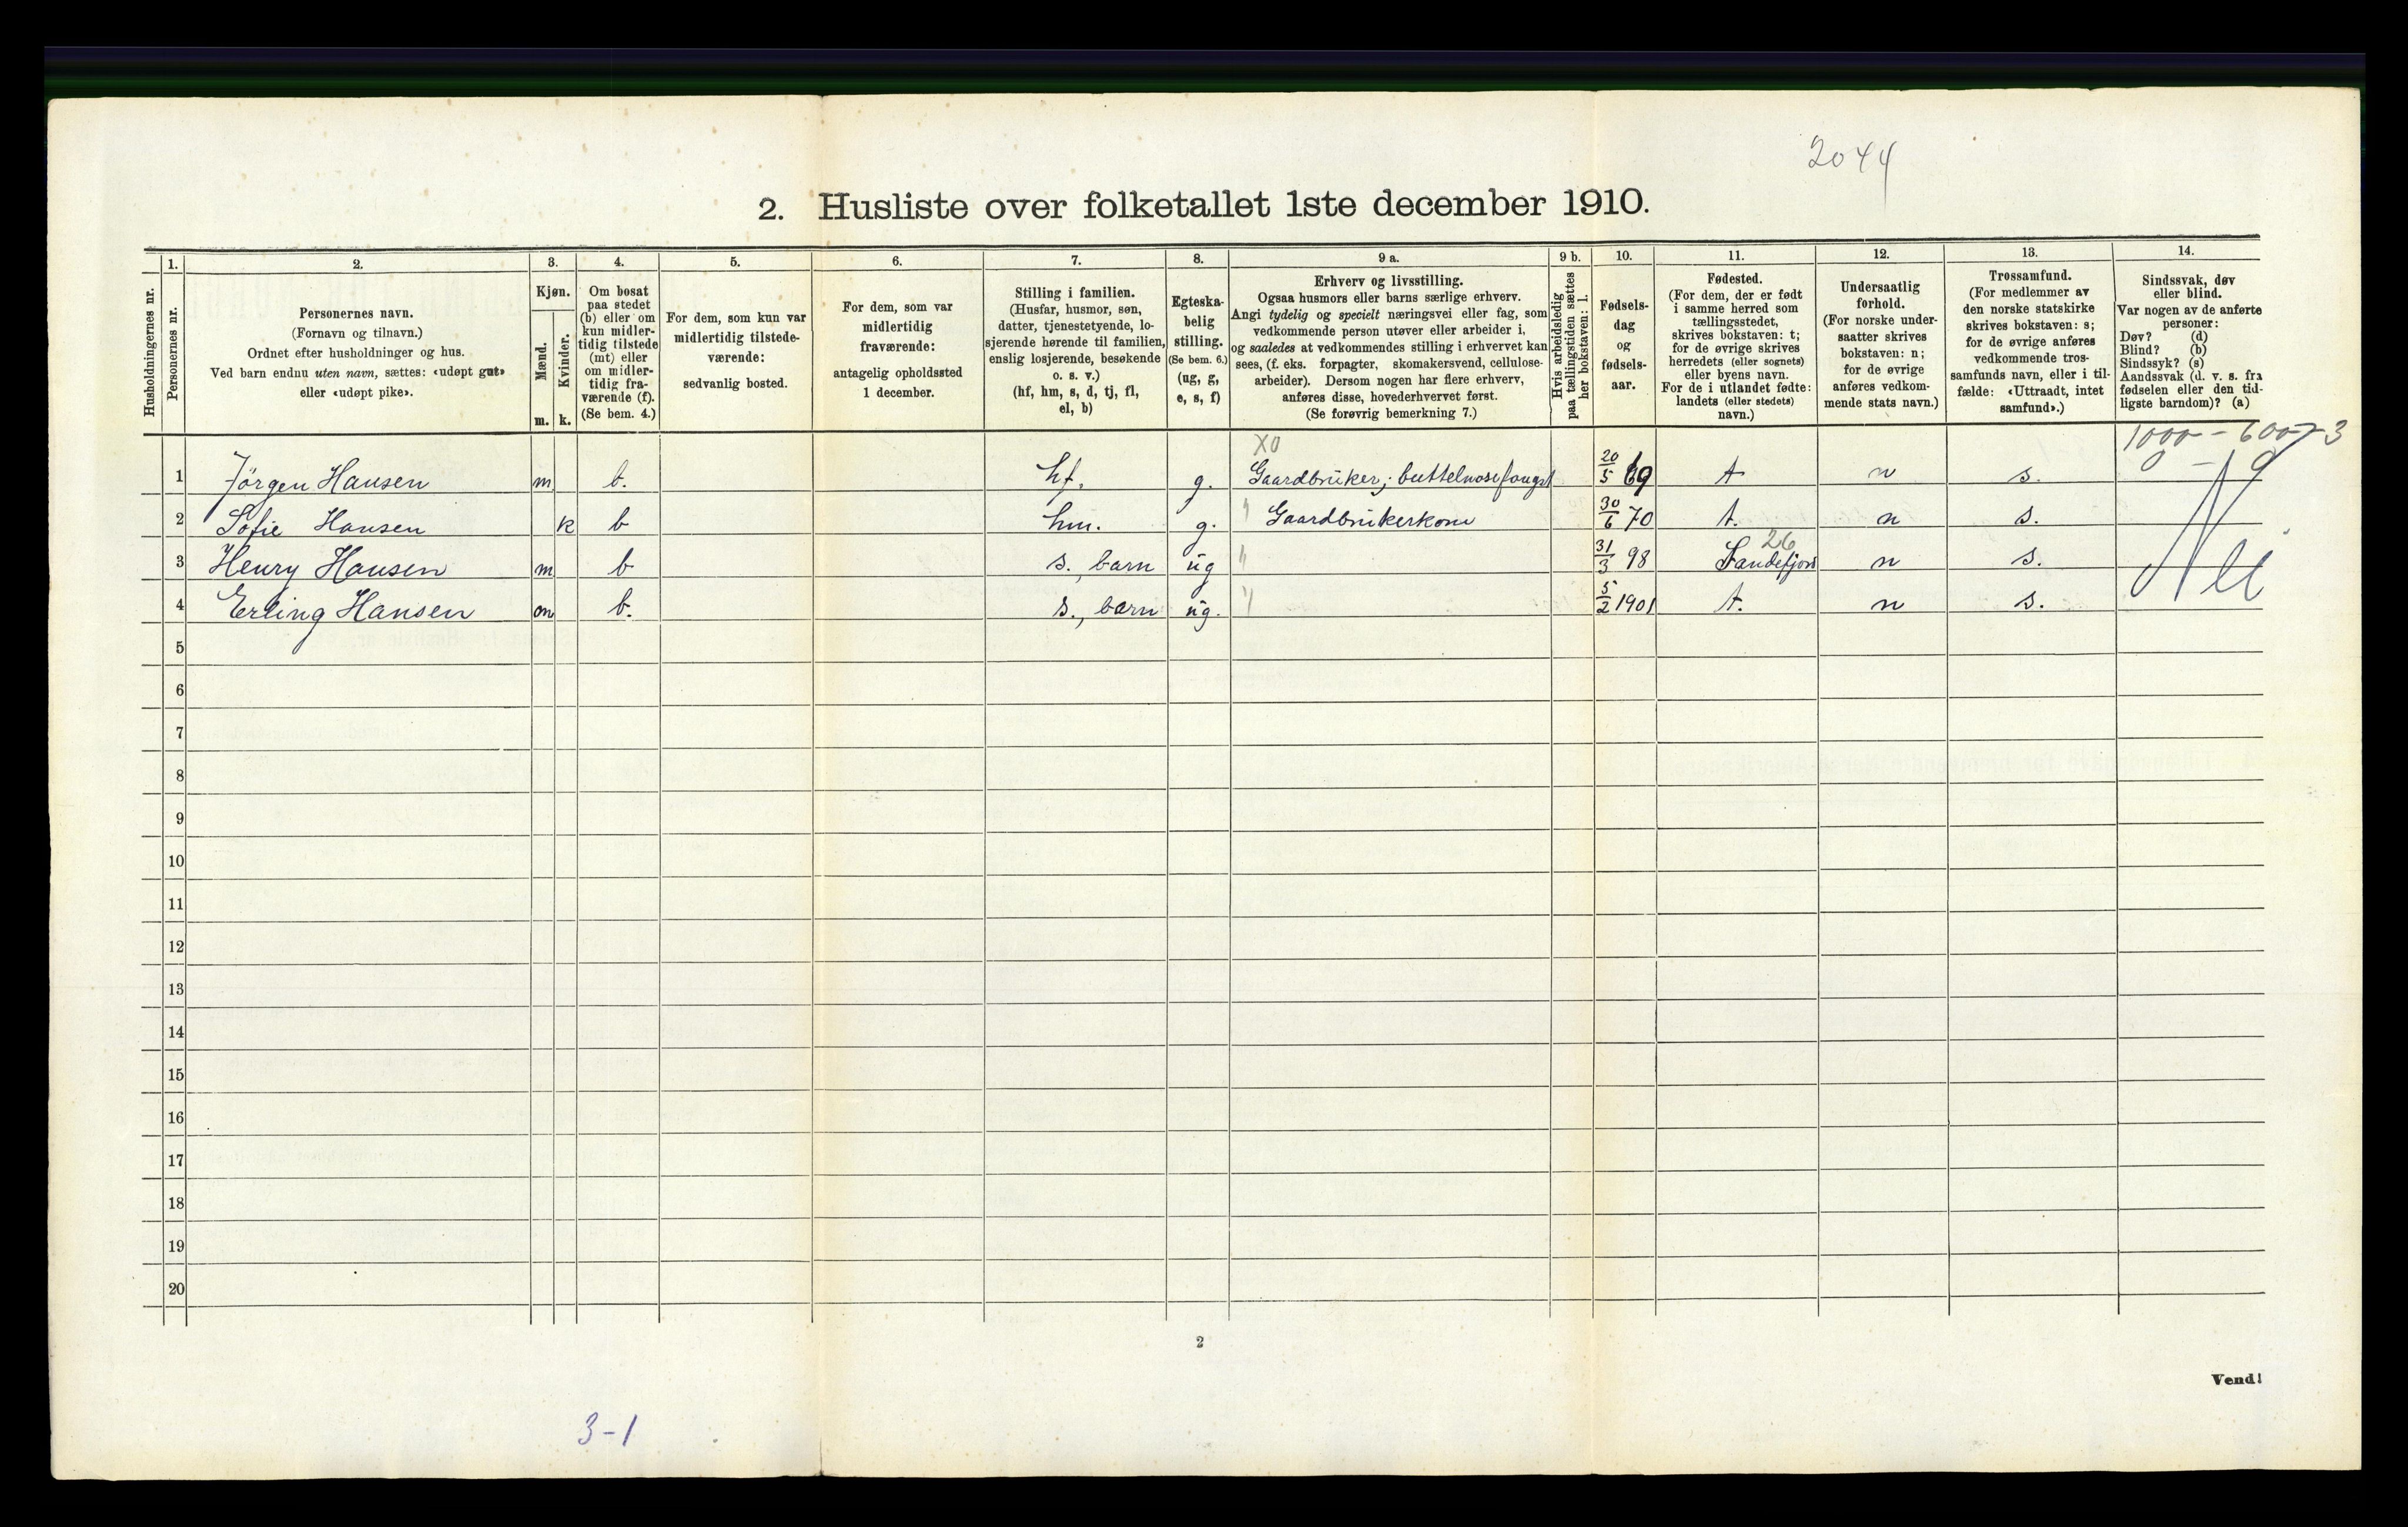 2044
2. Husliste over folketallet 1ste december 1910.
Husholdningernes nr.
1.
Personernes nr.
2.
Personernes navn.
(Fornavn og tilnavn.)
Ordnet efter husholdninger og hus.
Ved barn endnu uten navn, sættes: «udøpt gut»
eller «udøpt pike».
3.
Kjøn.
Mænd.
m.
Kvinder.
k.
4.
Om bosat
paa stedet
(b) eller om
kun midler-
tidig tilstede
(mt) eller
om midler-
tidig fra-
værende (f).
(Se bem. 4.)
5.
For dem, som kun var
midlertidig tilstede-
værende:
sedvanlig bosted.
6.
For dem, som var
midlertidig
fraværende:
antagelig opholdssted
1 december.
7.
Stilling i familien.
(Husfar, husmor, søn,
datter, tjenestetyende, lo-
sjerende hørende til familien,
enslig losjerende, besøkende
o. s. v.)
(hf, hm, s, d, tj, fl,
el, b)
8.
Egteska-
belig
stilling.
(Se bem. 6.)
(ug, g,
e, s, f)
9 a.
Erhverv og livsstilling.
Ogsaa husmors eller barns særlige erhverv.
Angi tydelig og specielt næringsvei eller fag, som
vedkommende person utøver eller arbeider i,
og saaledes at vedkommendes stilling i erhvervet kan
sees, (f. eks. forpagter, skomakersvend, cellulose-
arbeider). Dersom nogen har flere erhverv,
anføres disse, hovederhvervet først.
(Se forøvrig bemerkning 7.)
9 b.
Hvis arbeidsledig
paa tællingstiden sættes
her bokstaven: l.
10.
Fødsels-
dag
og
fødsels-
aar.
11.
Fødested.
(For dem, der er født
i samme herred som
tællingsstedet,
skrives bokstaven: t;
for de øvrige skrives
herredets (eller sognets)
eller byens navn.
For de i utlandet fødte:
landets (eller stedets)
navn.)
12.
Undersaatlig
forhold.
(For norske under-
saatter skrives
bokstaven: n;
for de øvrige
anføres vedkom-
mende stats navn.)
13.
Trossamfund.
(For medlemmer av
den norske statskirke
skrives bokstaven: s;
for de øvrige anføres
vedkommende tros-
samfunds navn, eller i til-
fælde: «Uttraadt, intet
samfund».)
14.
Sindssvak, døv
eller blind.
Var nogen av de anførte
personer:
Døv? (d)
Blind? (b)
Sindssyk? (s)
Aandssvak (d. v. s. fra
fødselen eller den tid-
ligste barndom)? (a)
X0
1000 - 600 - 3
0 - 9
1 Jörgen Hansen m b. hf. g. Gaardbruker; buttelnosefangst 20/5 69 t n s.
2 Sofie Hansen k b hm. g. " Gaardbrukerkone 30/6 70 t. n s.
26
3 Henry Hansen m b s., barn ug " 31/3 98 Sandefjord n s. Nei
4 Erling Hansen m b. s., barn ug. " 5/2 1901 t. n s.
5
6
7
8
9
10
11
12
13
14
15
16
17
18
19
20
2
Vend!
3-1